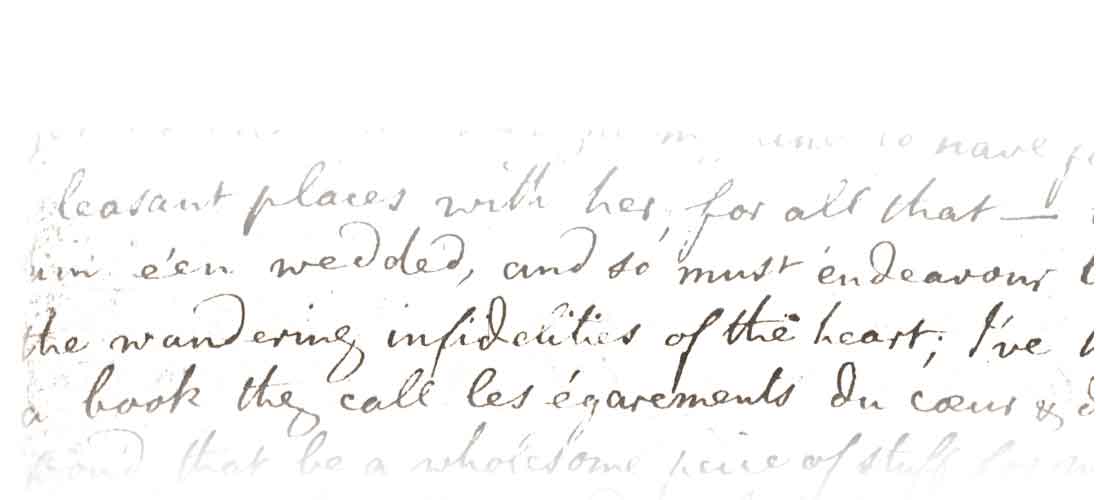 to have
pleasant places with her, for all that —
I'm e'en wedded, and so must endeavour
the wandering infidelities of the heart; I've
a book they call les égarements du cœur &
that be a wholesome piece of stuff for